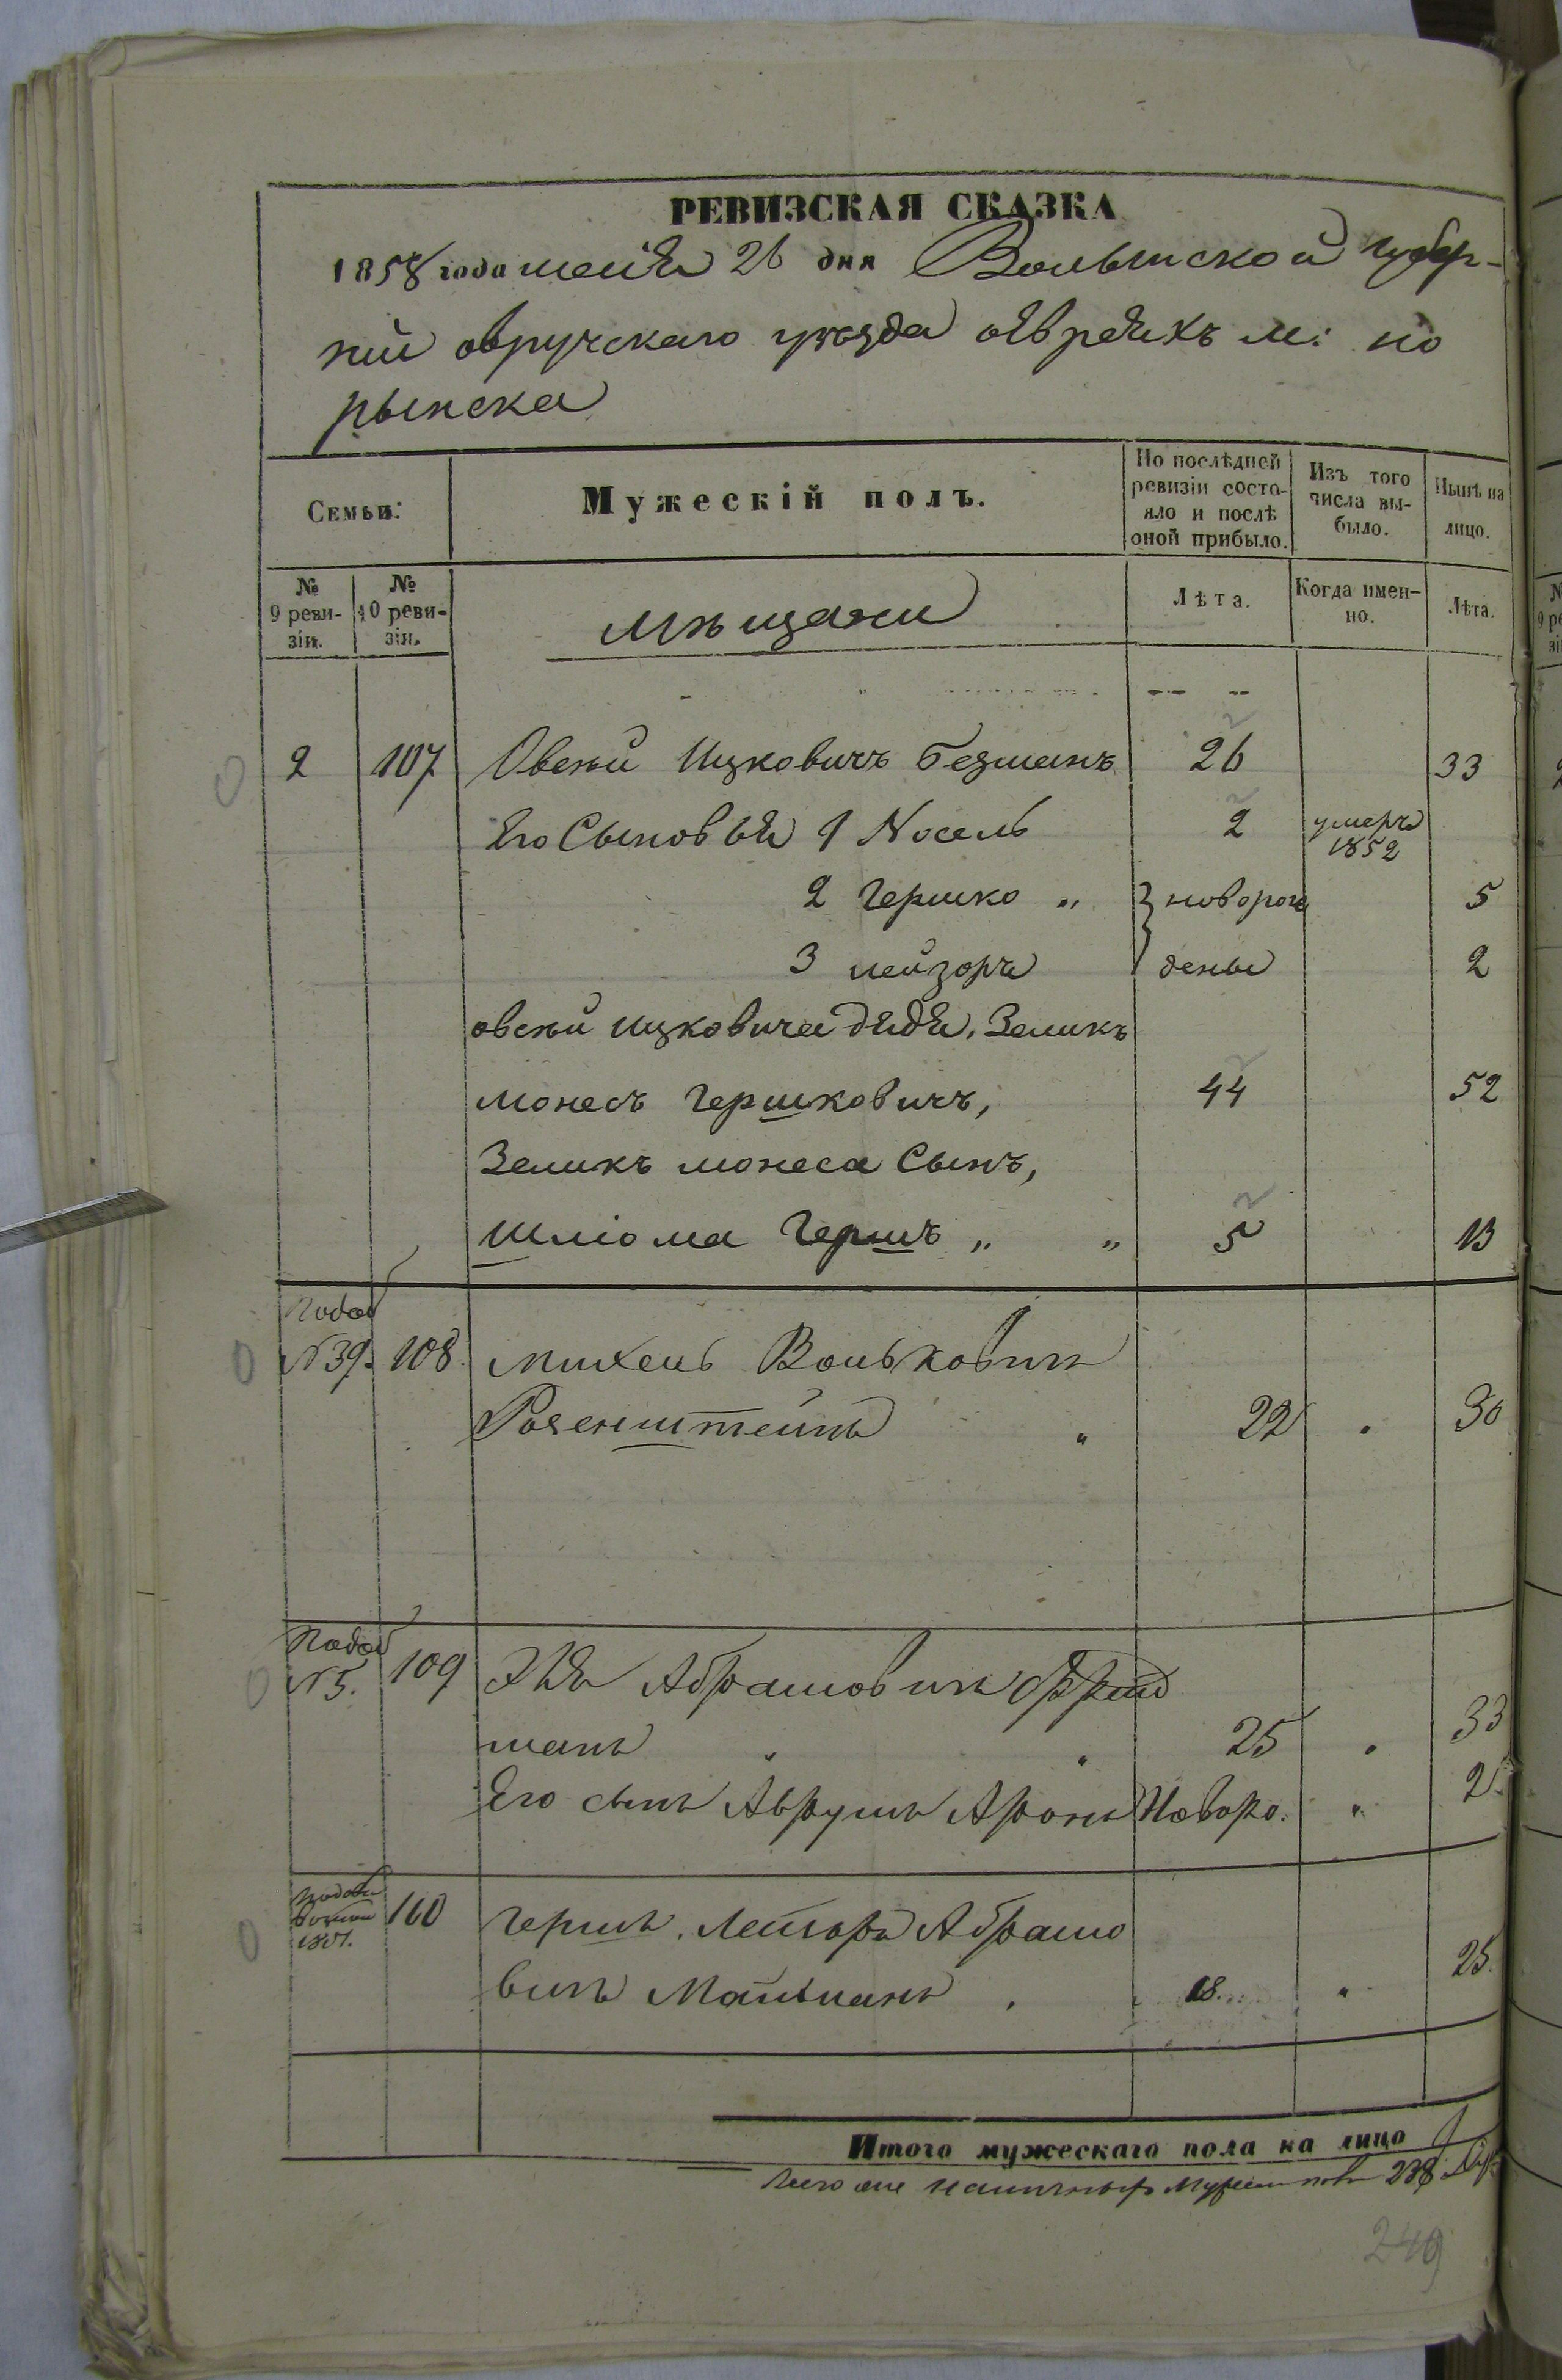 РЕВИЗСКАЯ СКАЗКА
1858 года маія 26 дня Волынской губер-
ніи овручскаго уѣзда о Евреяхъ м: но
рынска
Семьи:
Мужескій полъ.
По послѣдней ревизіи состо-яло и послѣ оной прибыло.
Изъ того числа вы-было.
Нынѣ на лицо.
№ 9 реви-зіи.
№ 10 реви-зіи.
мѣщани
Лѣта.
Когда имен-но.
Лѣта.
2 107 Овсей Ицковичъ Безманъ 26 33
Его Сыновья 1 Носель 2 умеръ 1852
2 Гершко „ новорож 5
3 лейзоръ дены 2
овсей ицковича дядя, Зеликъ
монесъ Гершковичъ, 44 52
Зеликъ монеса Сынъ,
Шліома Гершъ „ „ 5 13
№39. 108. михель Вольковичъ
Розенштейнъ „ 22 30
№5. 109 Абрамовичъ Фрид
манъ „ „ 25 33
Его сынъ Аврумъ Аронъ Новоро. „ 2.
110 Гершъ. Лейзоръ Абрамо
вичъ 18. „ 25.
Итого мужескаго пола на лицо
наличныхъ 238
249